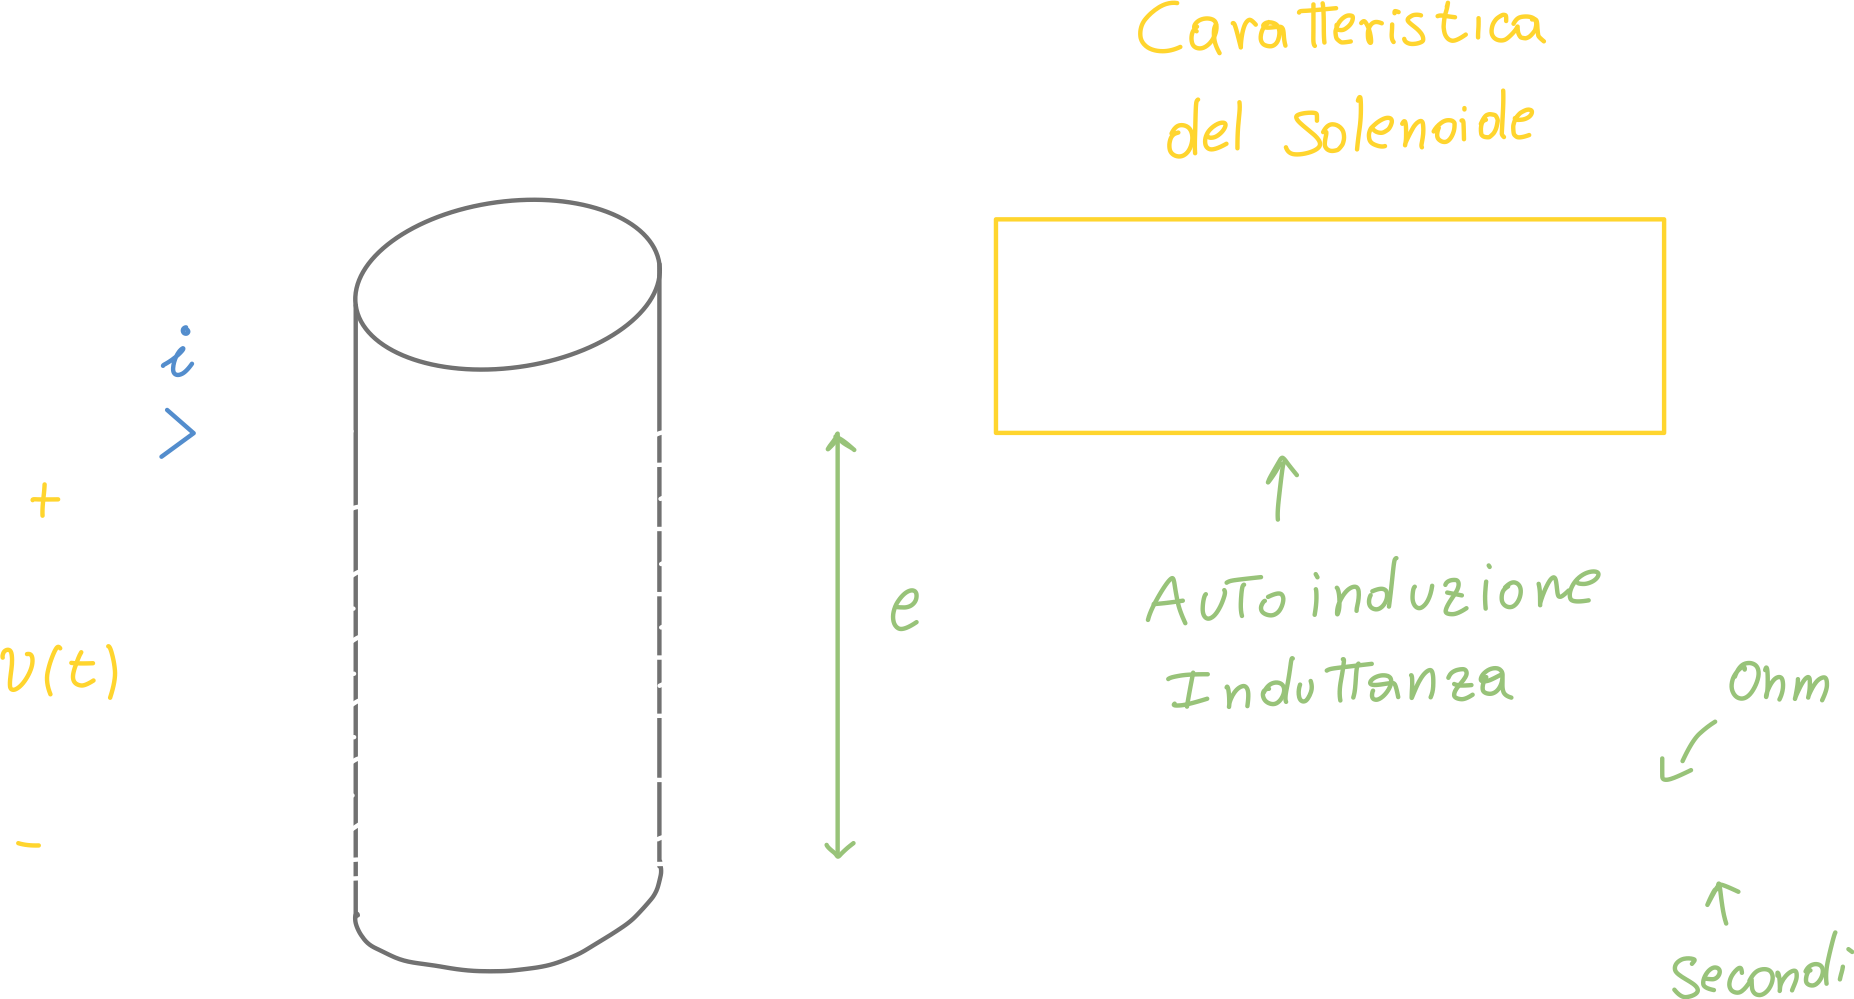 Caratteristica
del Solenoide
i
>
+
e
Autoinduzione
v(t)
Induttanza
Ohm
-
Secondi